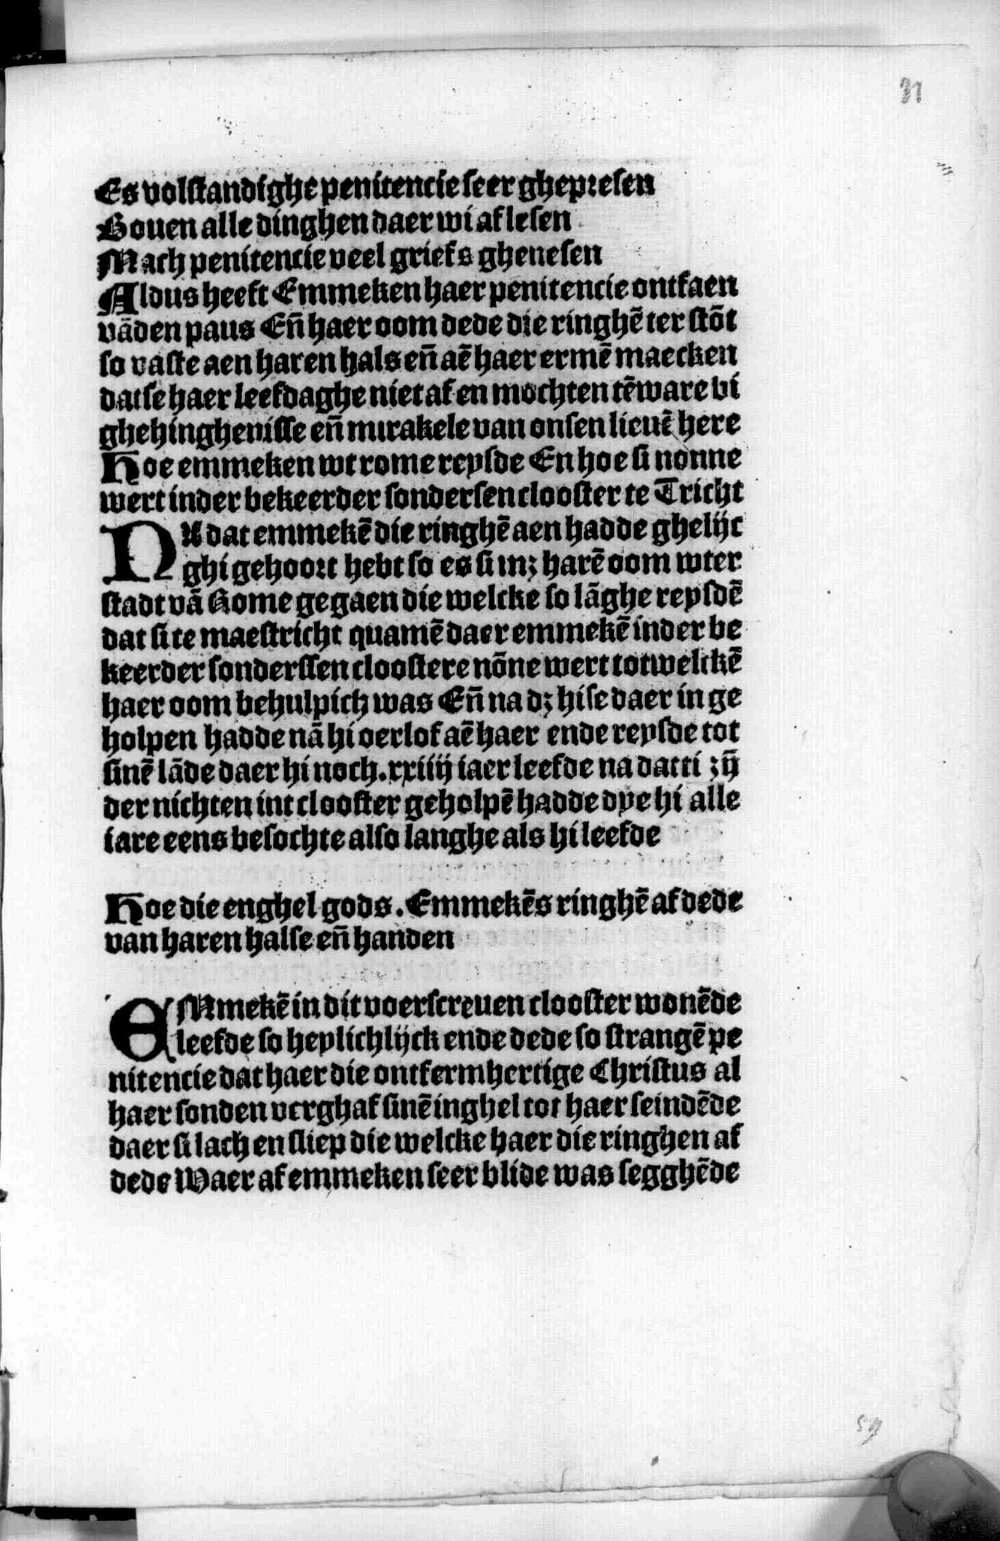 31
Es volstandighe penitencie seer ghepresen
Bouen alle dinghen daer wi af lesen
Mach penitencie veel griefs ghenesen
Aldus heeft Emmeken haer penitencie ontfaen
vāden paus Eñ haer oom dede die ringhē ter stōt
so vaste aen haren hals eñ aē haer ermē maecken
datse haer leefdaghe niet af en mochten tēware bi
ghehinghenisse eñ mirakele van onsen lieuē here
Hoe emmeken wt rome reysde En hoe si nonne
wert inder bekeerder sondersen clooster te Tricht
NU dat emmekē die ringhē aen hadde ghelijc
ghi gehoort hebt so es si mz harē oom wter
stadt vā Rome gegaen die welcke so lāghe reysdē
dat si te maestricht quamē daer emmekē inder be
keerder sonderssen cloostere nōne wert totwelckē
haer oom behulpich was Eñ na dz hise daer in ge
holpen hadde nā hi oerlof aē haer ende reysde tot
sinē lāde daer hi noch .xxiiij iaer leefde na datti zij̄
der nichten int clooster geholpē hadde dye hi alle
iare eens besochte also langhe als hi leefde
Hoe die enghel gods . Emmekēs ringhē af dede
van haren halse eñ handen
EMmekē in dit voerscreuen clooster wonēde
leefde so heylichlijck ende dede so strangē pe
nitencie dat haer die ontfermhertige Christus al
haer sonden verghaf sinē inghel tot haer seindēde
daer si lach en sliep die welcke haer die ringhen af
dede Waer af emmeken seer blide was segghēde